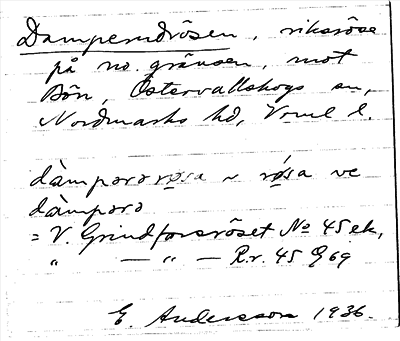 Damperudrösen, riksröse
på no. gränsen, mot
Bön, Östervallskogs sn,
Nordmarks hd, Vrml l.
dàmpərərø̀sa ~ rǿsa ve
dàmpərə
= V. Grindforsröset No 45 ek,
" — " — R.r. 45 G69
E. Andersson 1936.